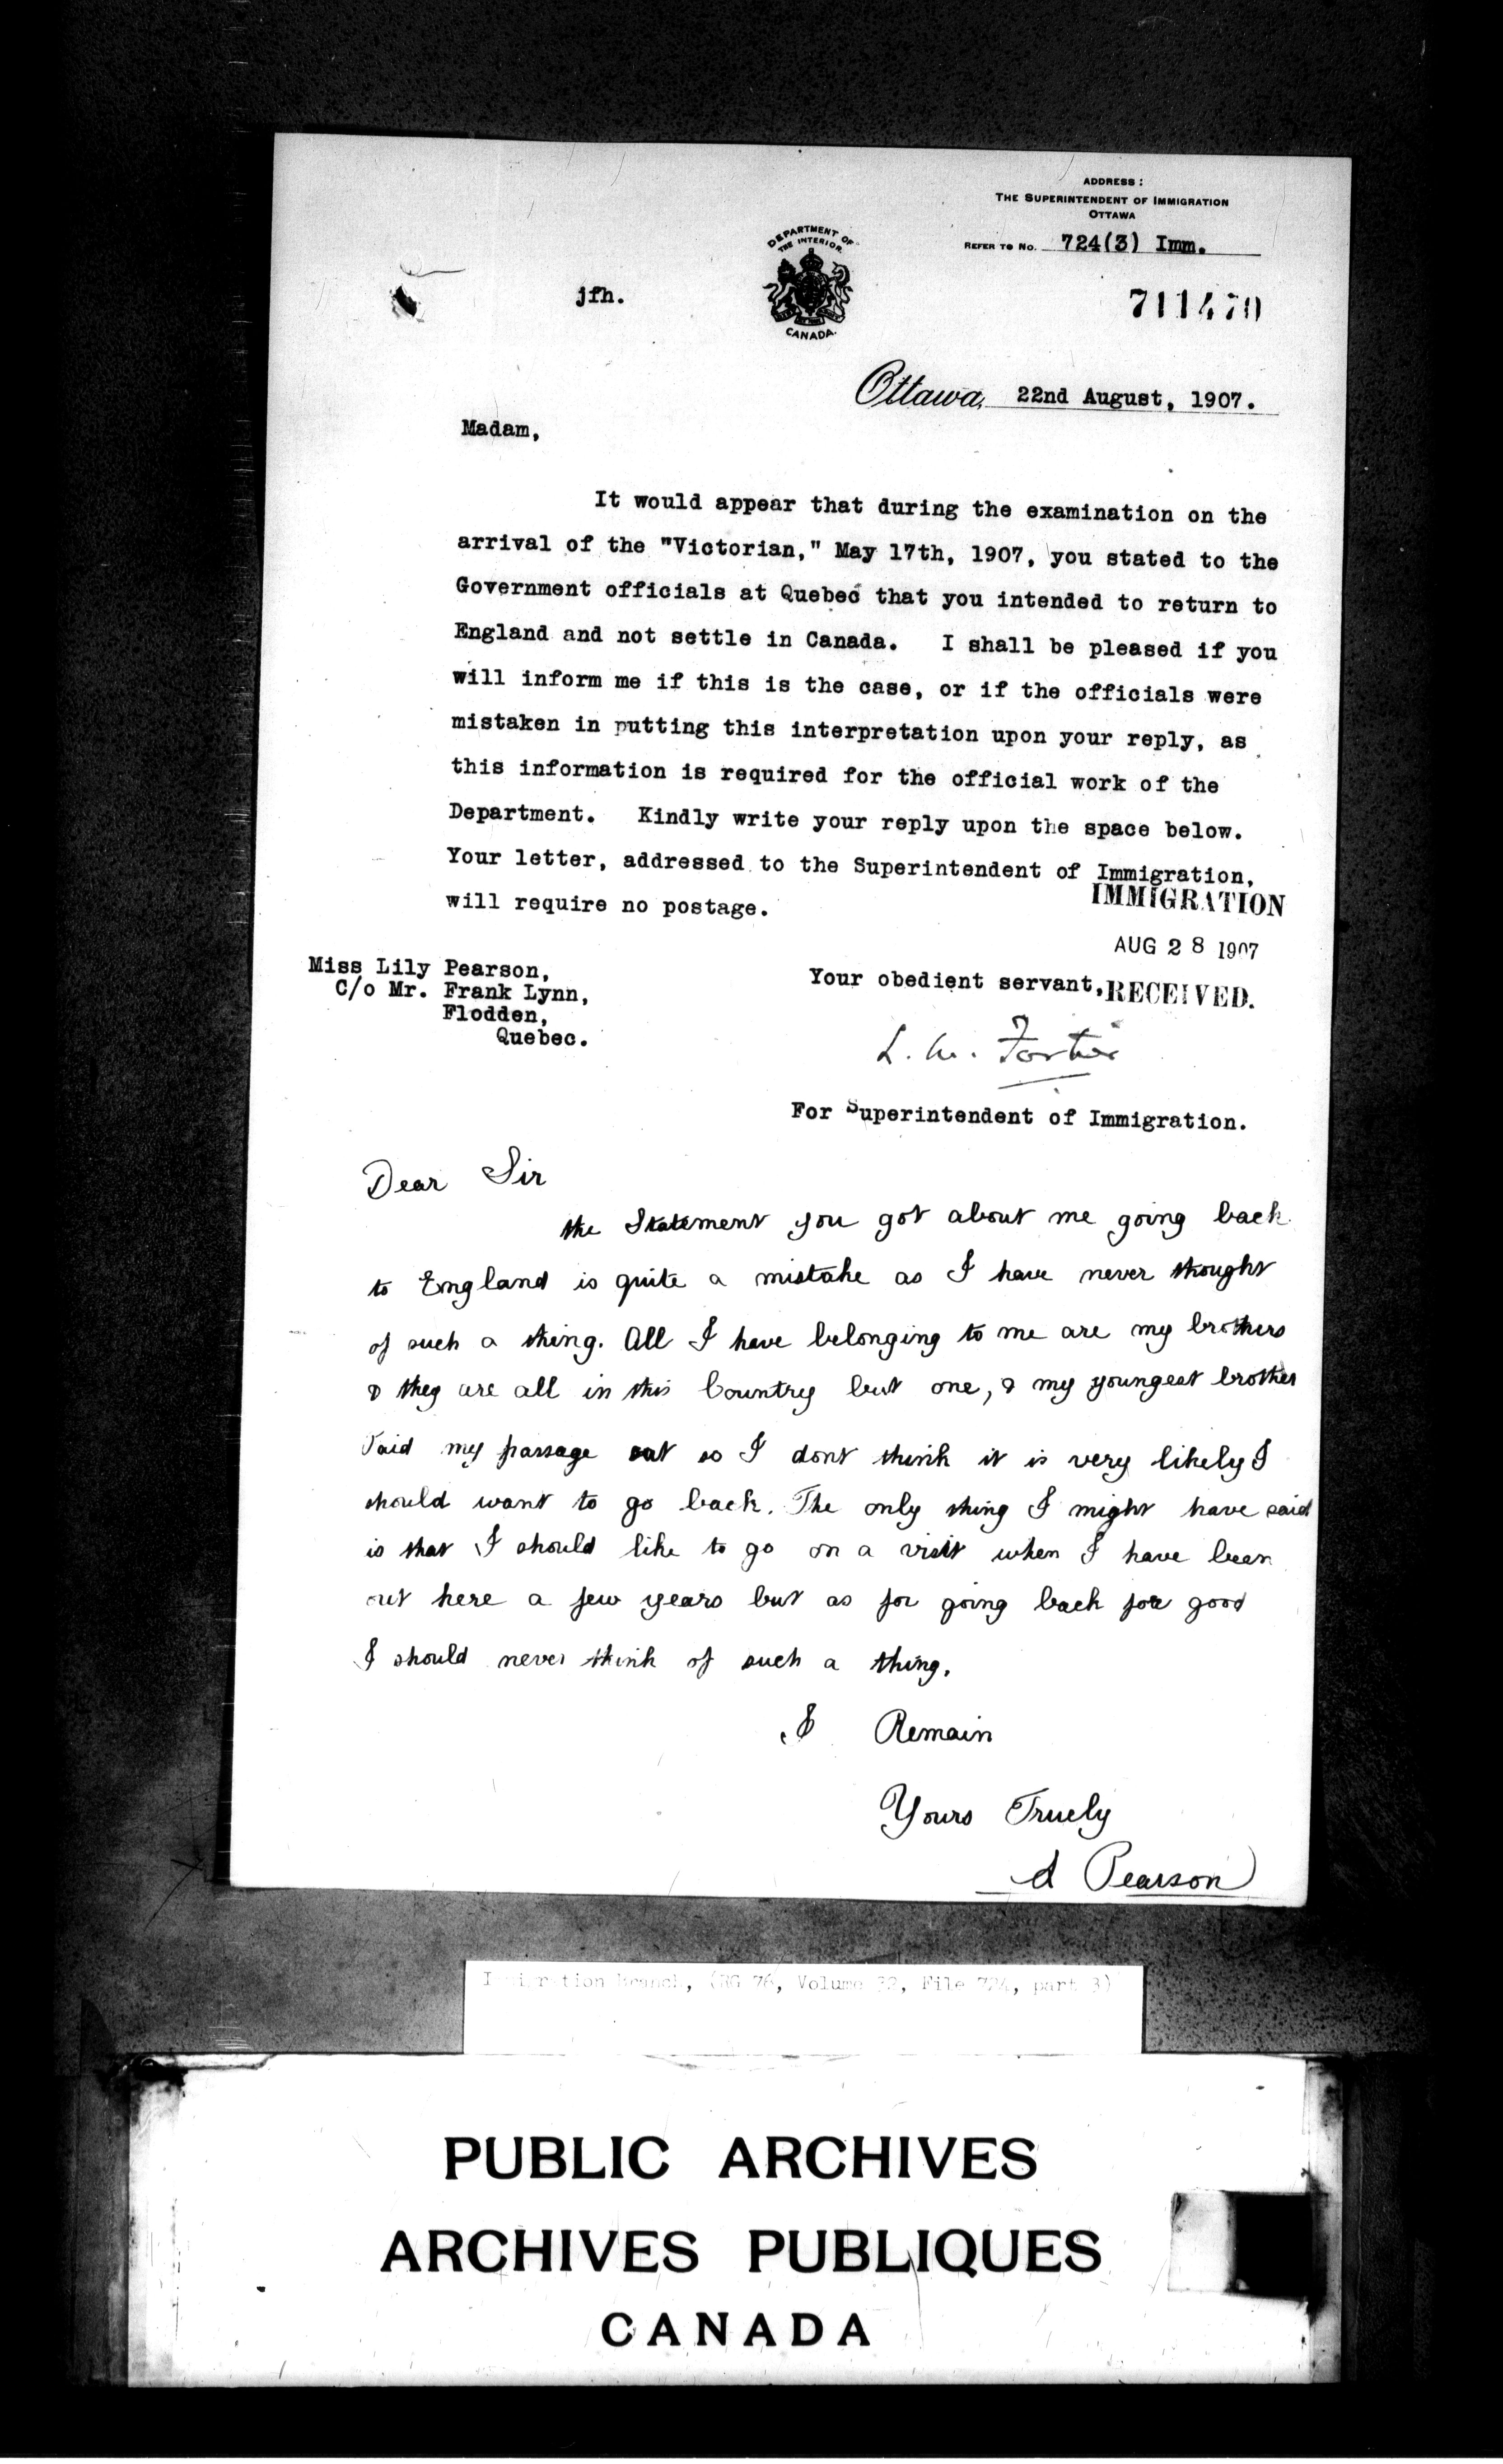 ADDRESS:
THE SUPERINTENDENT OF IMMIGRATION
OTTAWA
REFER TO NO. 724(3) Imm.
DEPARTMENT OF
THE INTERIOR
CANADA.
jfh.
711470
Ottawa, 22nd August, 1907.
Madam,
It would appear that during the examination on the
arrival of the "Victorian," May 17th, 1907, you stated to the
Government officials at Quebec that you intended to return to
England and not settle in Canada. I shall be pleased if you
will inform me if this is the case, or if the officials were
mistaken in putting this interpretation upon your reply, as
this information is required for the official work of the
Department. Kindly write your reply upon the space below.
Your letter, addressed to the Superintendent of Immigration,
will require no postage.
IMMIGRATION
AUG 28 1907
RECEIVED.
Miss Lily Pearson,
C/o Mr. Frank Lynn,
Flodden,
Quebec.
Your obedient servant,
L. M. Fortier
For Superintendent of Immigration.
Dear Sir
the Statement you got about me going back
to England is quite a mistake as I have never thought
of such a thing. All I have belonging to me are my brothers
& they are all in this Country but one, & my youngest brother
Paid my passage out so I dont think it is very likely I
should want to go back. The only thing I might have said
is that I should like to go on a visit when I have been
out here a few years but as for going back for good
I should never think of such a thing.
I Remain
Yours Truely
L Pearson
Immigration Branch, (RG 76, Volume 32, File 724, part 3)
PUBLIC ARCHIVES
ARCHIVES PUBLIQUES
CANADA